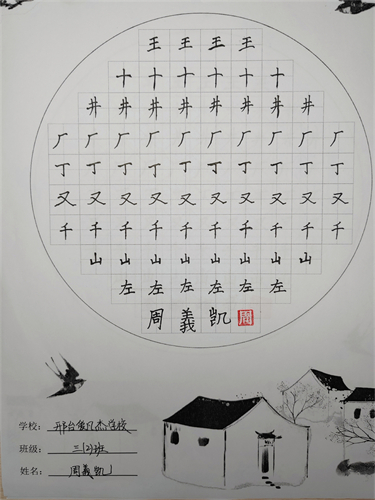 王王王王
十十十十十十
井井井井井井井井
厂厂厂厂厂厂厂厂厂厂
丁丁丁丁丁丁丁丁丁丁
又又又又又又又又又又
千千千千千千千千千千
山山山山山山山山
左左左左左左
周義凯
学校：邢台学校
班级：三(2)班
姓名：周義凯